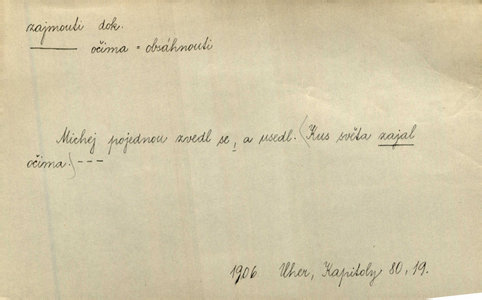 zajmouti dok.
——— očima = obsáhnouti
Michej pojednou zvedl se, a usedl. (Kus světa zajal
očima.) ---
1906 Uher, Kapitoly 80, 19.